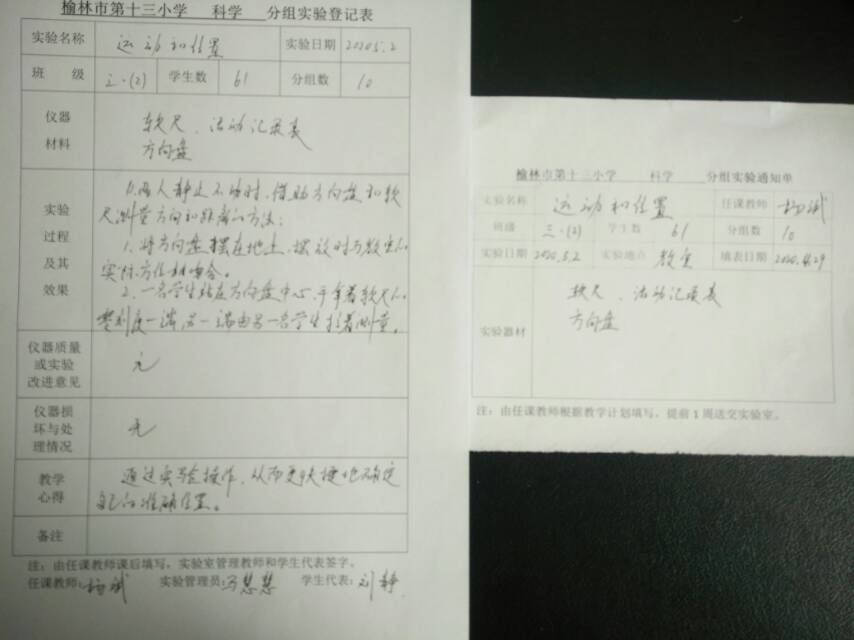 榆林市第十三小学 科学 分组实验登记表
实验名称 运动和位置 实验日期 2020.5.2
班 级 三·(2) 学生数 61 分组数 10
仪器材料
软尺、活动记录表
方向盘
实验过程及其效果
1.两人静止不动时,借助方向盘和软
尺测量方向和距离的方法:
1.将方向盘摆在地上,摆放时与教室的
实际方位相吻合。
2.一名学生站在方向盘中心,手拿着软尺的
零刻度一端,另一端由另一名学生拉着测量。
仪器质量或实验改进意见 无
仪器损坏与处理情况 无
教学心得
通过实验操作,从而更快捷地确定
自己的准确位置。
备注
注:由任课教师课后填写,实验室管理教师和学生代表签字。
任课教师:杨斌 实验管理员:冯慧慧 学生代表:刘静
榆林市第十三小学 科学 分组实验通知单
实验名称 运动和位置 任课教师 杨斌
班级 三·(2) 学生数 61 分组数 10
实验日期 2020.5.2 实验地点 教室 填表日期 2020.4.29
实验器材
软尺、活动记录表
方向盘
注:由任课教师根据教学计划填写,提前1周送交实验室。